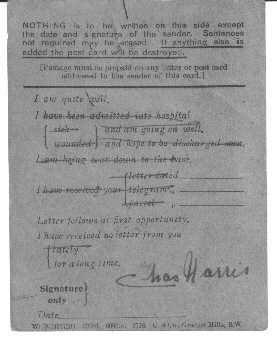 NOTHING is to be written on this side except
the date and signature of the sender. Sentences
not required may be erased. If anything else is
added the post card will be destroyed.
[Postage must be prepaid on any letter or post card
addressed to the sender of this card.]
I am quite well.
I have been admitted into hospital
sick and am going on well.
wounded and hope to be discharged soon.
I am being sent down to the base.
letter dated
I have received your telegram "
parcel "
Letter follows at first opportunity.
I have received no letter from you
lately
for a long time.
Chas Harris
Signature
only
Date